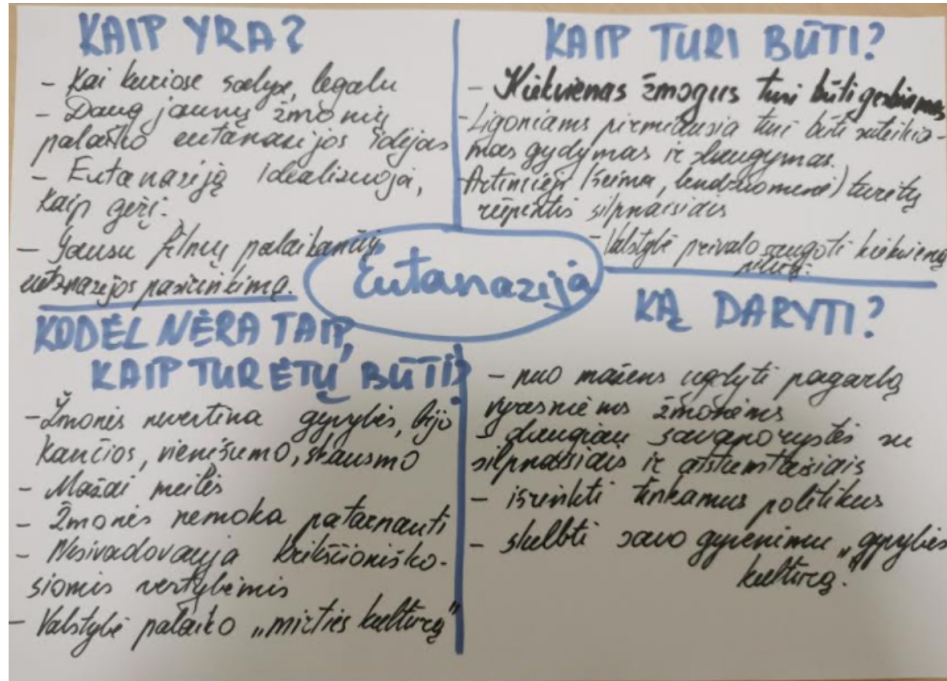 KAIP YRA?
- Kai kuriose šalyse, legalu
- Daug jaunų žmonių
palaiko eutanazijos idėjas
- Eutanaziją idealizuoja,
kaip gėrį.
- Gausu filmų palaikančių
eutanazijos pasirinkimą.
KAIP TURI BŪTI?
- Kiekvienas žmogus turi būti gerbiamas
- Ligoniams pirmiausia turi būti suteikia-
mas gydymas ir slaugymas.
- Artimieji (šeima, bendruomenė) turėtų
rūpintis silpnaisiais
- Valstybė privalo saugoti kiekvieną
Eutanazija
KODĖL NĖRA TAIP,
KAIP TURĖTŲ BŪTI?
- Žmonės nevertina gyvybės, bijo
kančios, vienišumo, skausmo
- Mažai meilės
- Žmonės nemoka patarnauti
- Nesivadovauja krikščioniško-
siomis vertybėmis
- Valstybė palaiko „mirties kultūrą"
KĄ DARYTI?
- nuo mažens ugdyti pagarbą
vyresniems žmonėms
- daugiau savanorystės su
silpnaisiais ir atstumtaisiais
- išrinkti tinkamus politikus
- skelbti savo gyvenimu „gyvybės
kultūrą."